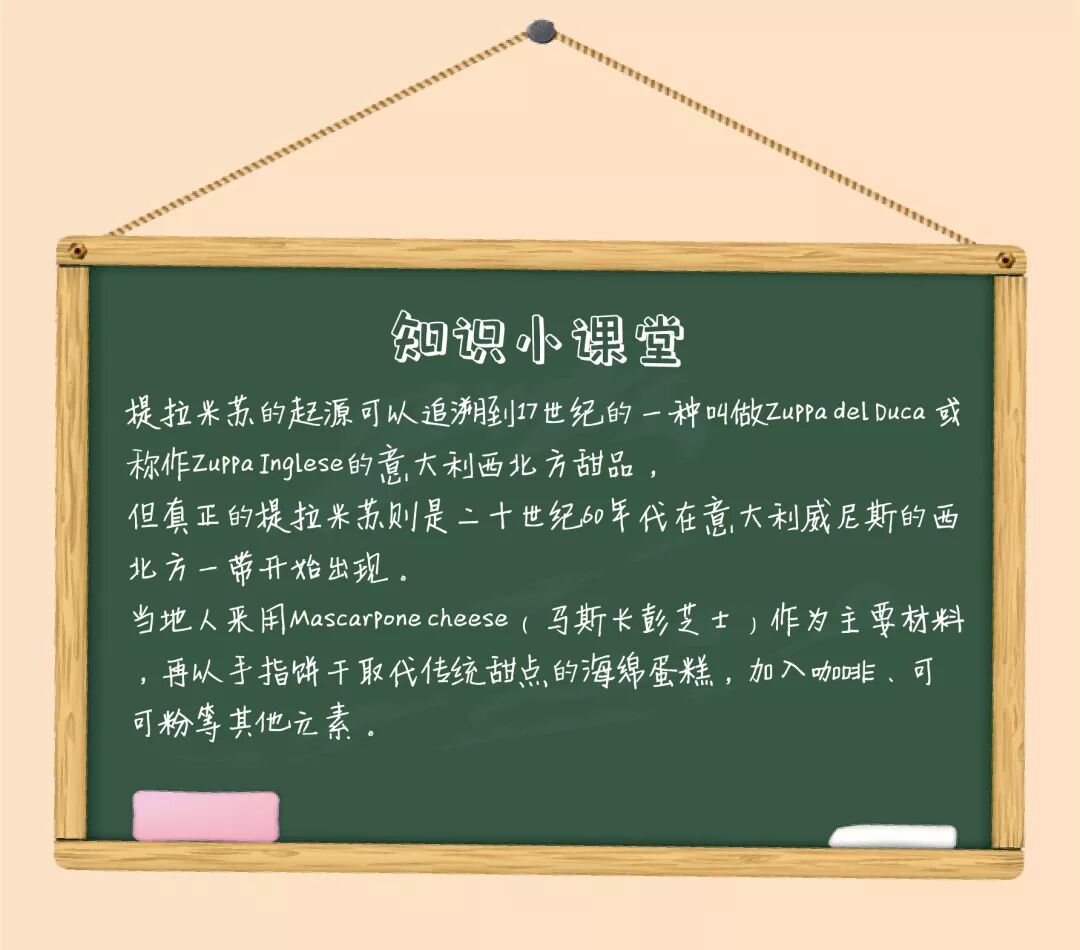 知识小课堂
提拉米苏的起源可以追溯到17世纪的一种叫做Zuppa del Duca 或
称作Zuppa Inglese的意大利西北方甜品，
但真正的提拉米苏则是二十世纪60年代在意大利威尼斯的西
北方一带开始出现。
当地人采用Mascarpone cheese（马斯卡彭芝士）作为主要材料
，再以手指饼干取代传统甜点的海绵蛋糕，加入咖啡、可
可粉等其他元素。